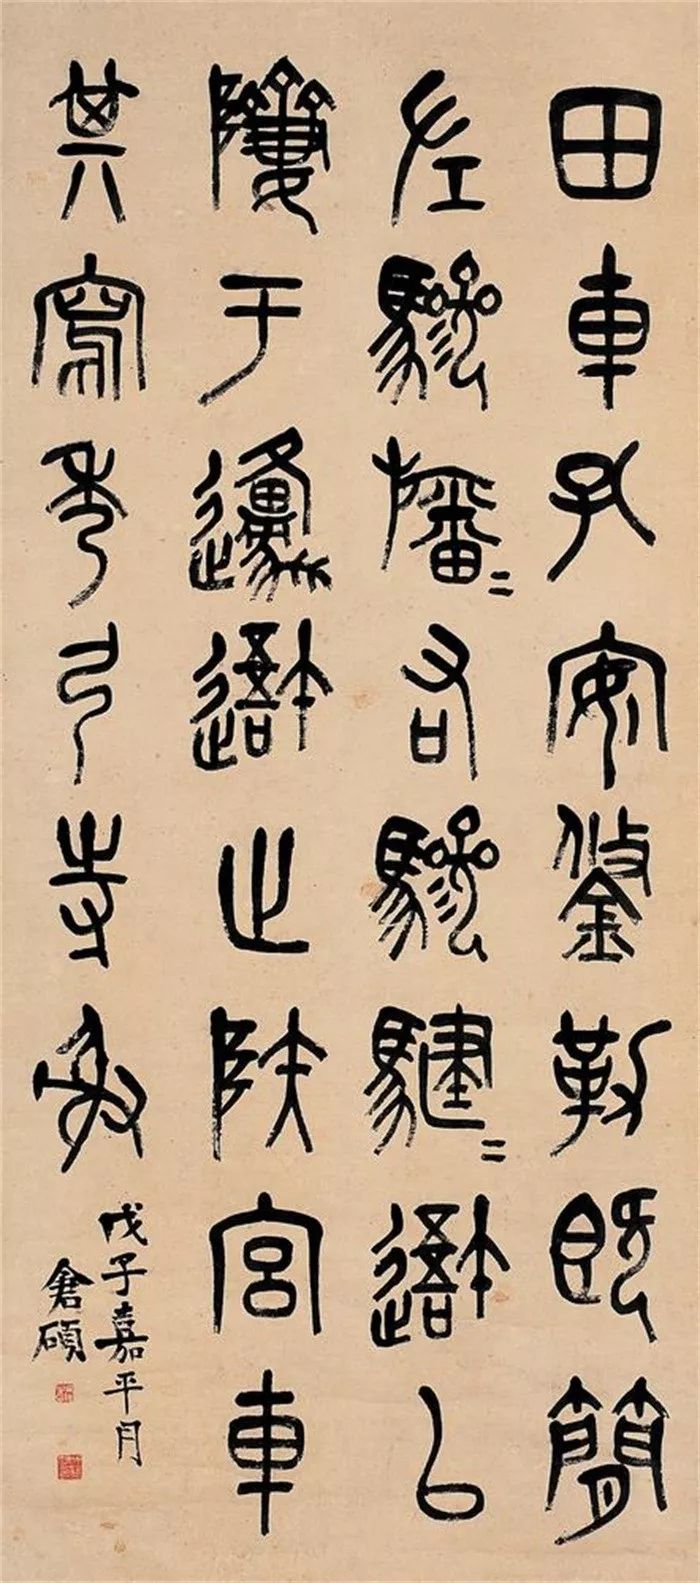 田車孔安鋚勒既簡
左驂旛〻右驂騝〻吾以
隮于邍吾止陕宮車
其寫秀弓寺射
戊子嘉平月
倉碩